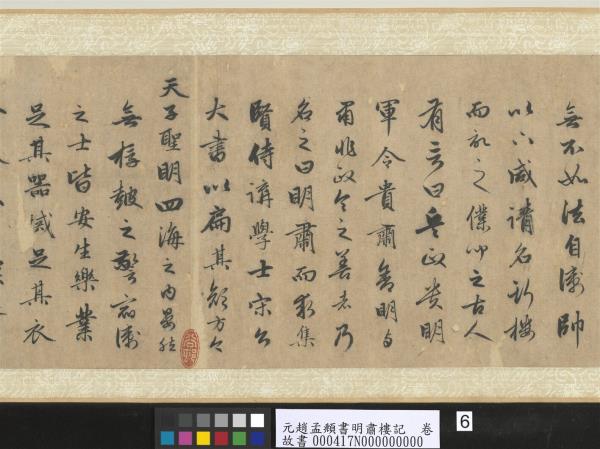 無不如法自衛帥
以下咸請名新樓
而記之僕聞之古人
有言曰兵政貴明
軍令貴肅無明與
肅非政令之善者乃
名之曰明肅而求集
賢侍講學士宋公
大書以扁其顏方今
天子聖明四海之內晏然
無桴鼓之警宿衛
之士皆安生樂業
足其器械足其衣
元趙孟頫書明肅樓記 卷
故書 000417N000000000
6